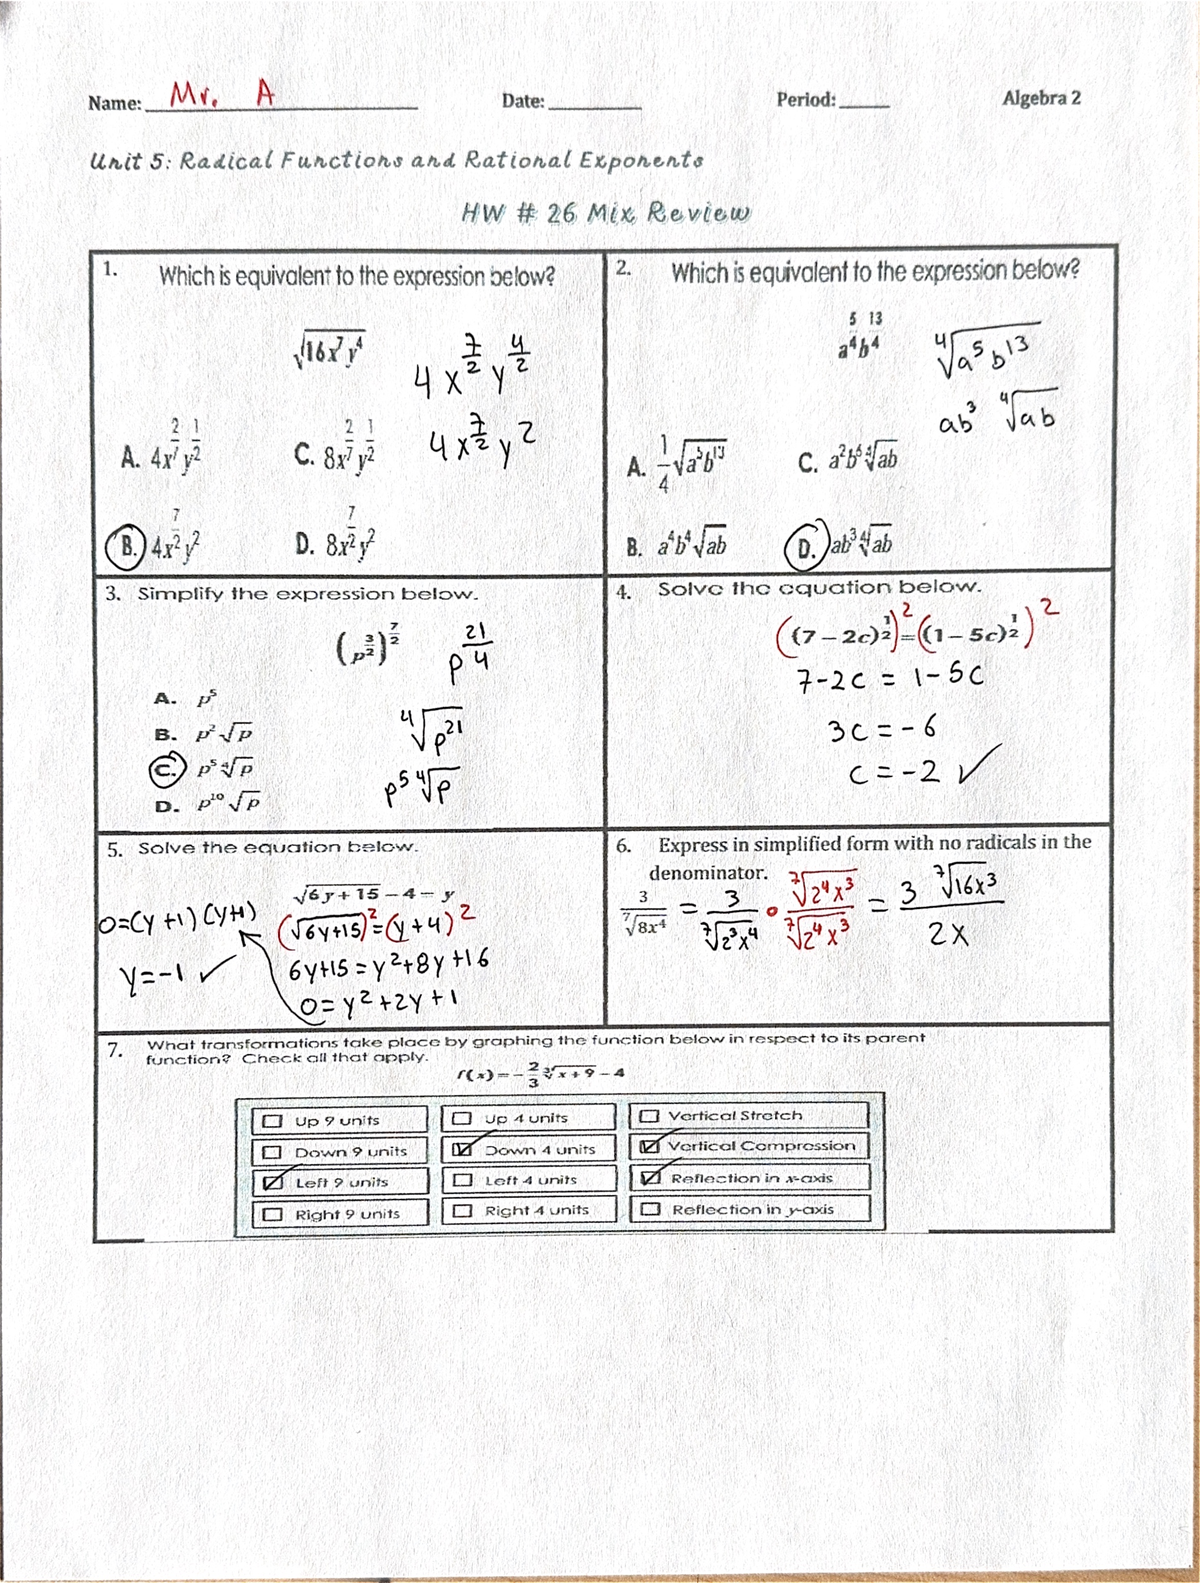 Name: Mr. A Date: Period: Algebra 2
Unit 5: Radical Functions and Rational Exponents
HW # 26 Mix Review
1. Which is equivalent to the expression below?
√(16x^7 y^4)
4x^(7/2) y^(4/2)
4x^(7/2) y^2
A. 4x^(2/7) y^(1/2)
C. 8x^(2/7) y^(1/2)
B. 4x^(7/2) y^2
D. 8x^(7/2) y^2
2. Which is equivalent to the expression below?
a^(5/4) b^(13/4)
∜(a^5 b^13)
ab^3 ∜(ab)
A. 1/4 √(a^5 b^13)
C. a^2 b^6 ∜(ab)
B. a^4 b^4 √(ab)
D. ab^3 ∜(ab)
3. Simplify the expression below.
(p^(3/2))^(7/2)
p^(21/4)
∜(p^21)
p^5 ∜p
A. p^5
B. p^2 √p
C. p^5 ∜p
D. p^10 √p
4. Solve the equation below.
((7 – 2c)^(1/2))^2 = ((1 – 5c)^(1/2))^2
7-2c = 1-5c
3c = -6
c = -2 ✓
5. Solve the equation below.
√(6y + 15) – 4 = y
(√(6y+15))^2 = (y+4)^2
6y+15 = y^2+8y+16
0 = y^2+2y+1
0=(y+1)(y+1)
y=-1 ✓
6. Express in simplified form with no radicals in the
denominator.
3/⁷√(8x^4) = 3/⁷√(2^3x^4) • ⁷√(2^4x^3)/⁷√(2^4x^3) = 3 ⁷√(16x^3)/2x
7. What transformations take place by graphing the function below in respect to its parent
function? Check all that apply.
f(x) = – 2/3 ∛(x + 9) – 4
☐ Up 9 units
☐ Down 9 units
☑ Left 9 units
☐ Right 9 units
☐ Up 4 units
☑ Down 4 units
☐ Left 4 units
☐ Right 4 units
☐ Vertical Stretch
☑ Vertical Compression
☑ Reflection in x-axis
☐ Reflection in y-axis